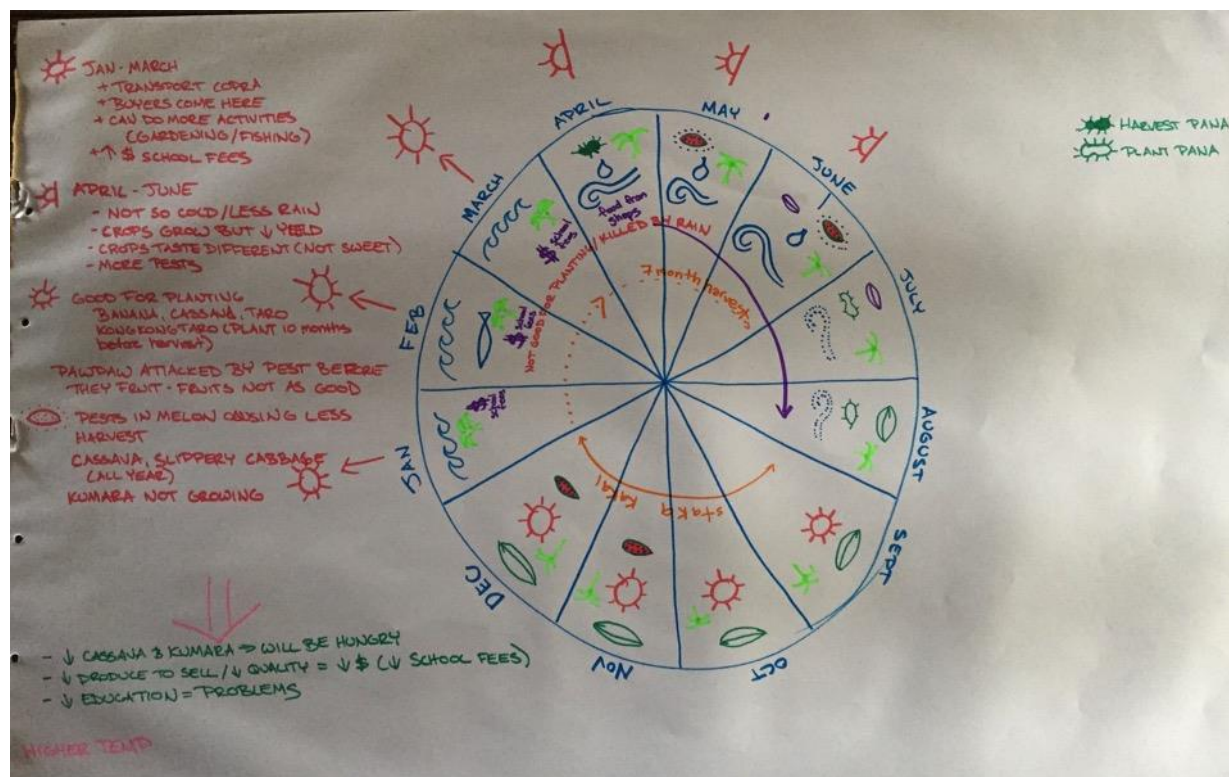 JAN-MARCH
+ TRANSPORT COPRA
+ BUYERS COME HERE
+ CAN DO MORE ACTIVITIES
(GARDENING/FISHING)
+↑ $ SCHOOL FEES
APRIL - JUNE
- NOT SO COLD/LESS RAIN
- CROPS GROW BUT ↓ YIELD
- CROPS TASTE DIFFERENT (NOT SWEET)
- MORE PESTS
GOOD FOR PLANTING
BANANA, CASSAVA, TARO
KONGKONG TARO (PLANT 10 months
before harvest)
PAWPAW ATTACKED BY PEST BEFORE
THEY FRUIT - FRUITS NOT AS GOOD
PESTS IN MELON CAUSING LESS
HARVEST
CASSAVA, SLIPPERY CABBAGE
(ALL YEAR)
KUMARA NOT GROWING
- ↓ CASSAVA & KUMARA → WILL BE HUNGRY
- ↓ PRODUCE TO SELL / ↓ QUALITY = ↓ $ (↓ SCHOOL FEES)
- ↓ EDUCATION = PROBLEMS
HIGHER TEMP
JAN
FEB
MARCH
APRIL
MAY
JUNE
JULY
AUGUST
SEPT
OCT
NOV
DEC
$ school fees
$ school fees
$$ school fees
food from shops
NOT GOOD FOR PLANTING / KILLED BY RAIN
staka
kakai
HARVEST PANA
PLANT PANA